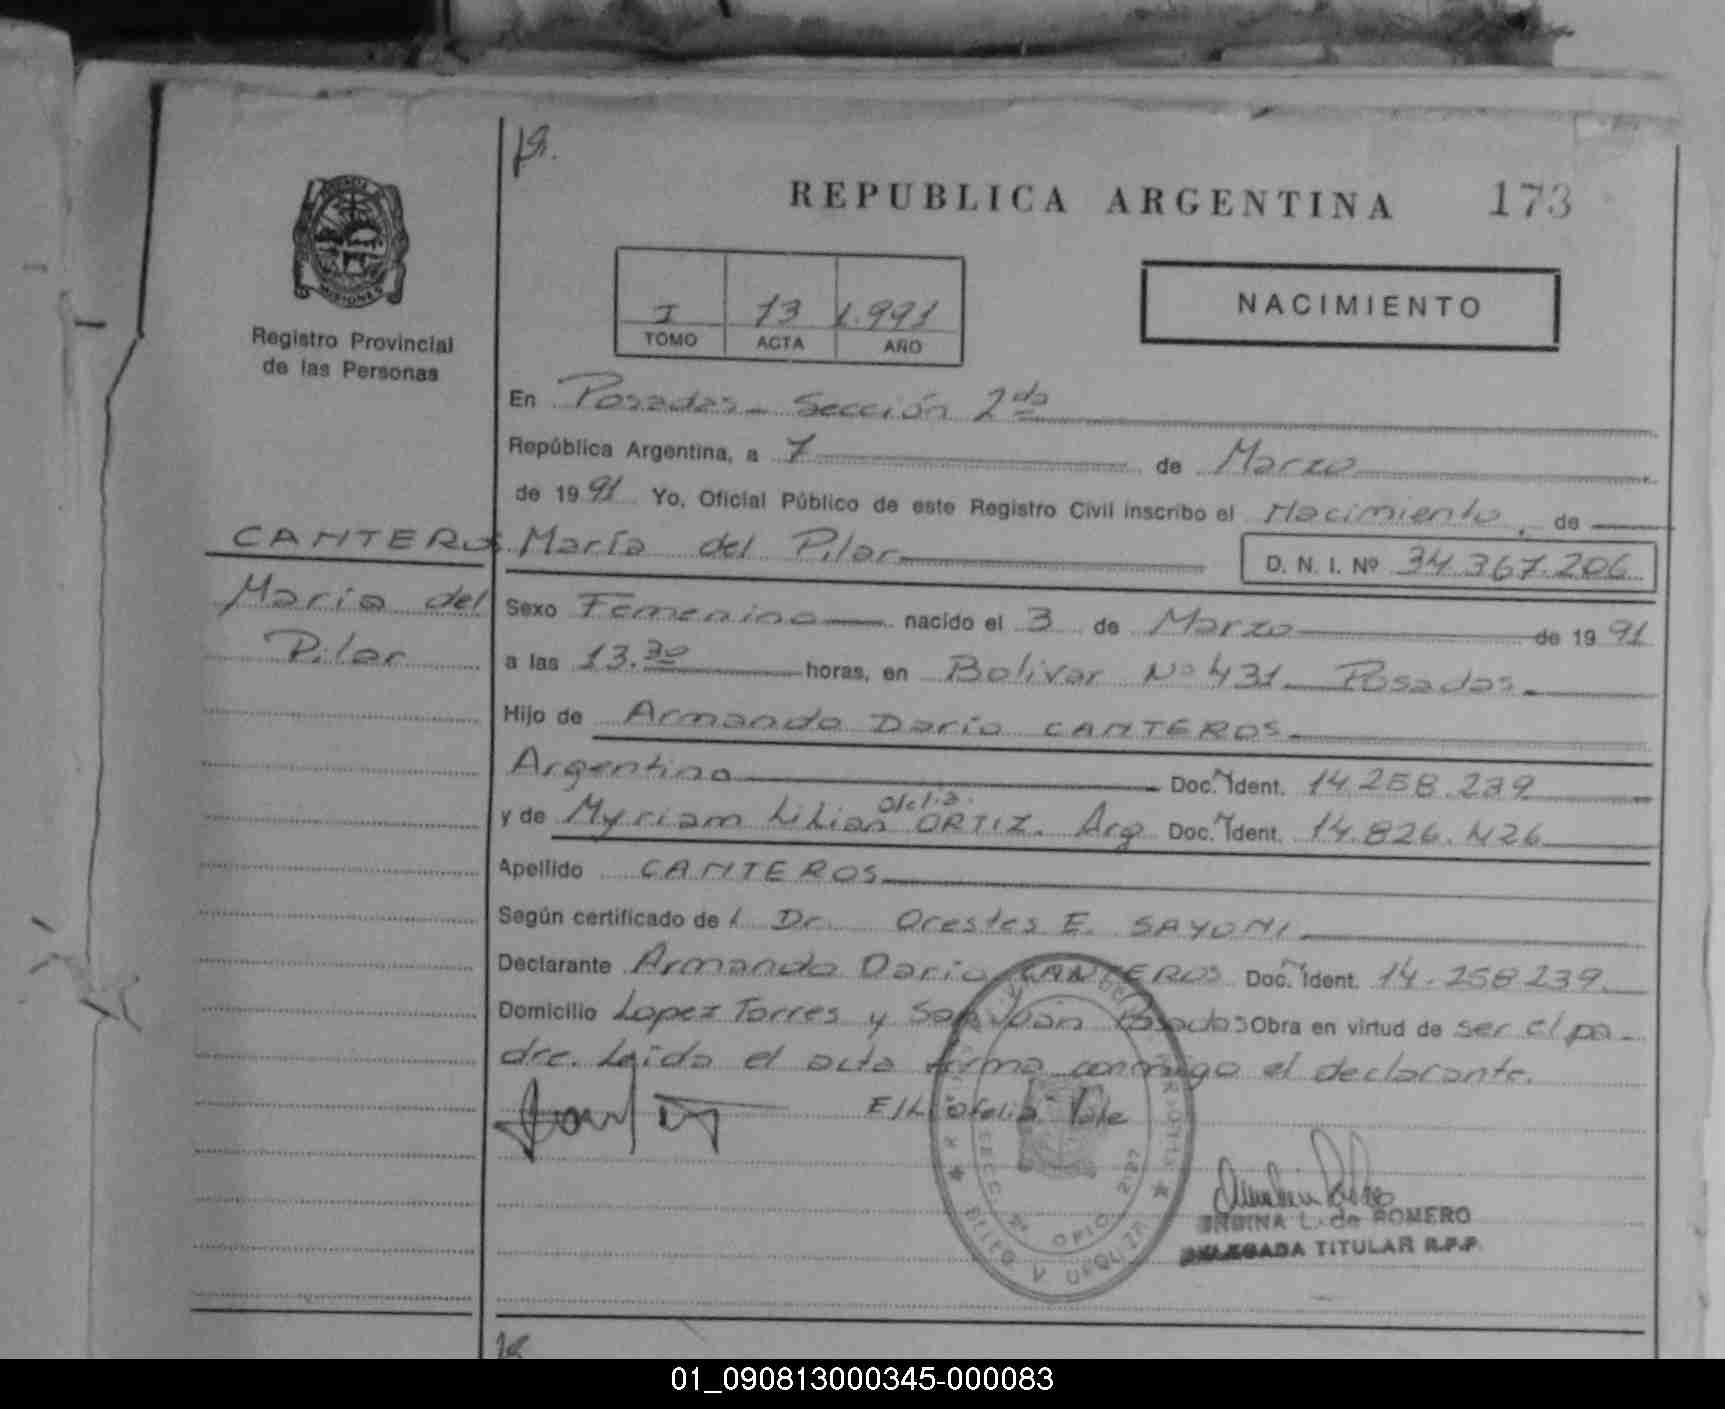 REPUBLICA ARGENTINA 173
MISIONES
Registro Provincial
de las Personas
I 13 1.991
TOMO ACTA AÑO
NACIMIENTO
En Posadas - Sección 2da
República Argentina, a 7 de Marzo
de 1991 Yo, Oficial Público de este Registro Civil inscribo el Nacimiento, de
CANTEROS María del Pilar D. N. I. Nº 34.367.206
María del
Pilar
Sexo Femenino nacido el 3 de Marzo de 1991
a las 13.30 horas, en Bolivar Nº 431 Posadas.
Hijo de Armando Darío CANTEROS
Argentino Doc. N. Ident. 14.258.239
Ofelia
y de Myriam Lilian ORTIZ. Arg Doc. N. Ident. 14.826.426
Apellido CANTEROS
Según certificado del Dr. Orestes E. SAYONI
Declarante Armando Dario CANTEROS Doc. N. Ident. 14.258.239.
Domicilio Lopez Torres y San Juan Posadas Obra en virtud de ser el pa-
dre. Leida el acta firma conmigo el declarante.
E/L: Ofelia. Vale
L. de ROMERO
DELEGADA TITULAR R.P.P.
01_090813000345-000083